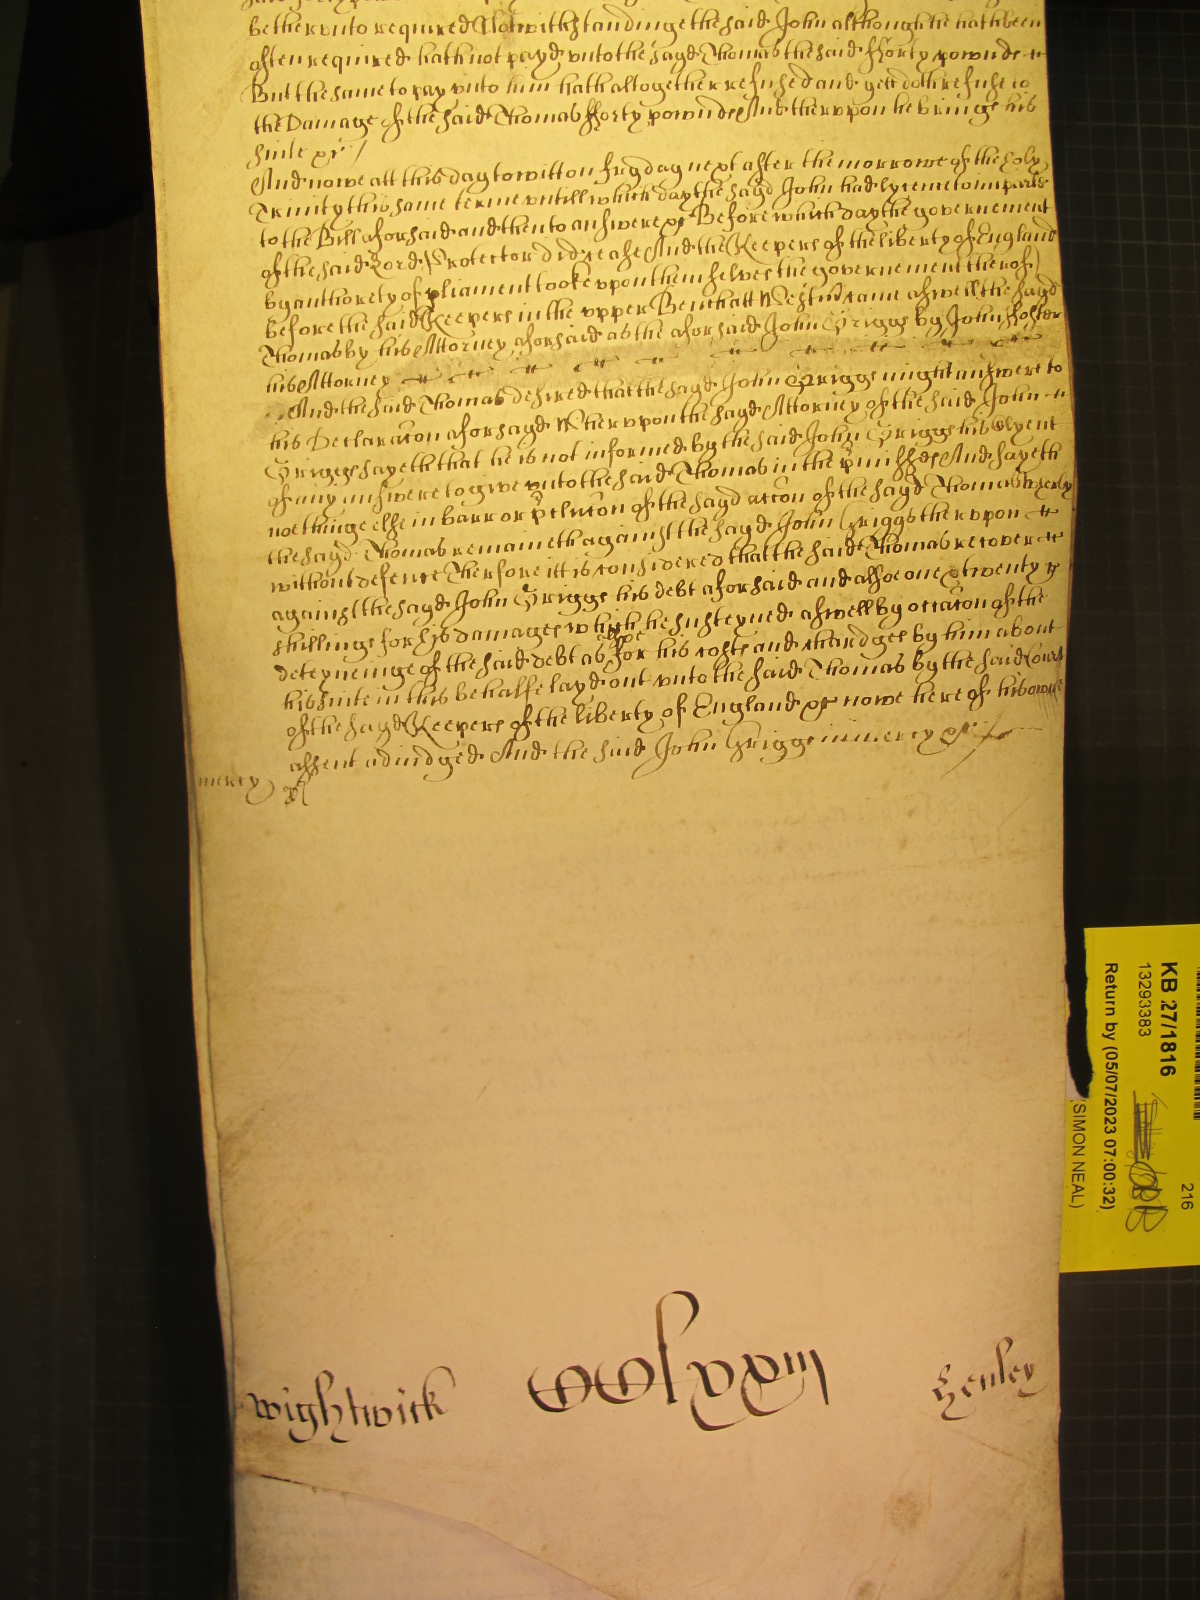 be therunto required Notwithstandinge the said John although he hath been
often required hath not payd unto the sayd Thomas the said fforty pownds
But the same to pay unto him hath altogether refused and yett doth refuse to
the Damage of the said Thomas fforty pownds And therupon he brings his
suite &c /
And nowe att this day to witt on fryday next after the morrowe of the holy
Trinity this same terme untill which day the sayd John had lycence to imparle
to the Bill aforsaid and then to answere &c Before which day the governement
of the said Lord Protector did cease And the Keepers of the liberty of England
by authorety of pliament tooke upon themselves the governement therof
before the said Keepers in the upper Bench att Westmr came aswell the sayd
Thomas by his Attorney aforsaid as the aforsaid John Griggs by John ffoster
his Attorney
And the said Thomas desired that the sayd John Griggs might answere to
his Declaracon aforsayd Wherupon the sayd Attorney of the said John
Griggs sayeth that he is not informed by the said John Griggs his Clyent
of any answere to give unto the said Thomas in the pmisses And sayeth
nothinge else in barr or pclusion of the sayd accon of the sayd Thomas Wherby
the sayd Thomas remaineth against the sayd John Griggs therupon
without defence Therfore itt is considered that the said Thomas recover
against the sayd John Griggs his debt aforsaid and alsoe one & twenty
shillings for his damages which he susteyned aswell by occacon of the
deteyneinge of the said debt as for his costs and chardges by him about
his suite in this behalfe layd out unto the said Thomas by the said Court
of the sayd Keepers of the liberty of England &c nowe here of his owne
assent adiudged And the said John Griggs in mercy &c
mercy
Wightwick
Henley
KB 27/1816
13293383
Return by (05/07/2023 07:00:32)
SIMON NEAL)
216